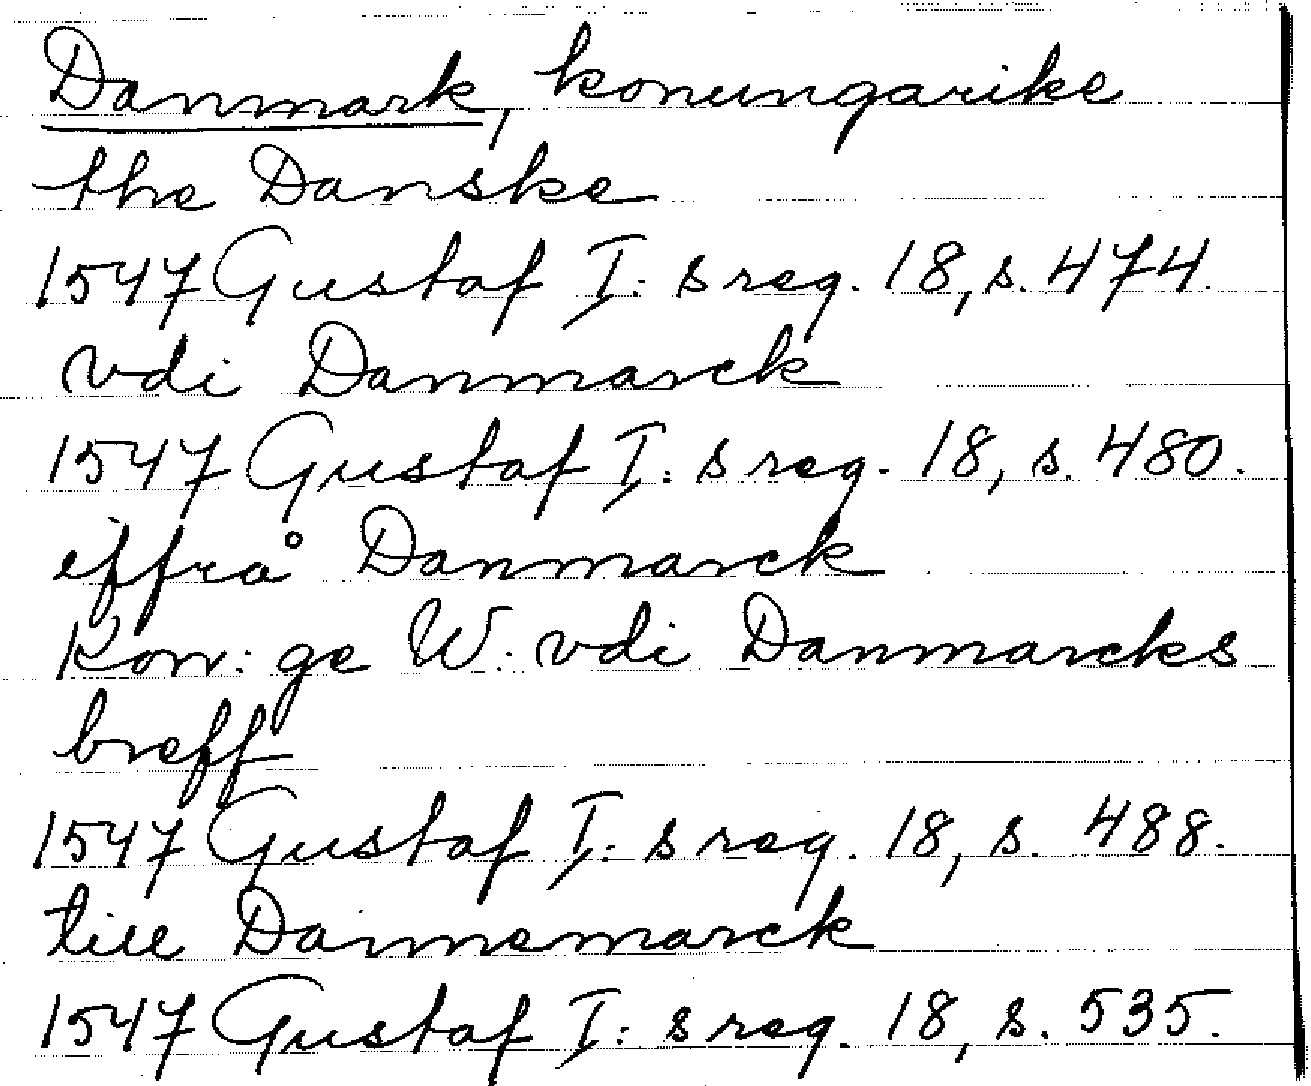 Danmark, konungarike
the Danske
1547 Gustaf I: s reg. 18, s. 474.
vdi Danmarck
1547 Gustaf I: s reg. 18, s. 480.
iffrå Danmarck
Kon: ge W. vdi Danmarcks
breff
1547 Gustaf I: s reg. 18, s. 488.
till Dannemarck
1547 Gustaf I: s reg. 18, s. 535.